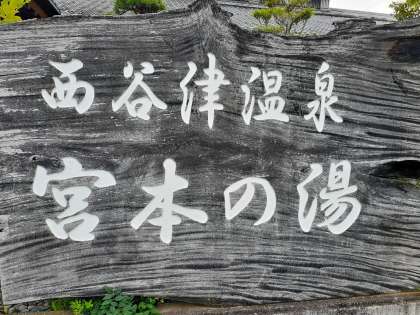 西谷津温泉
宮本の湯